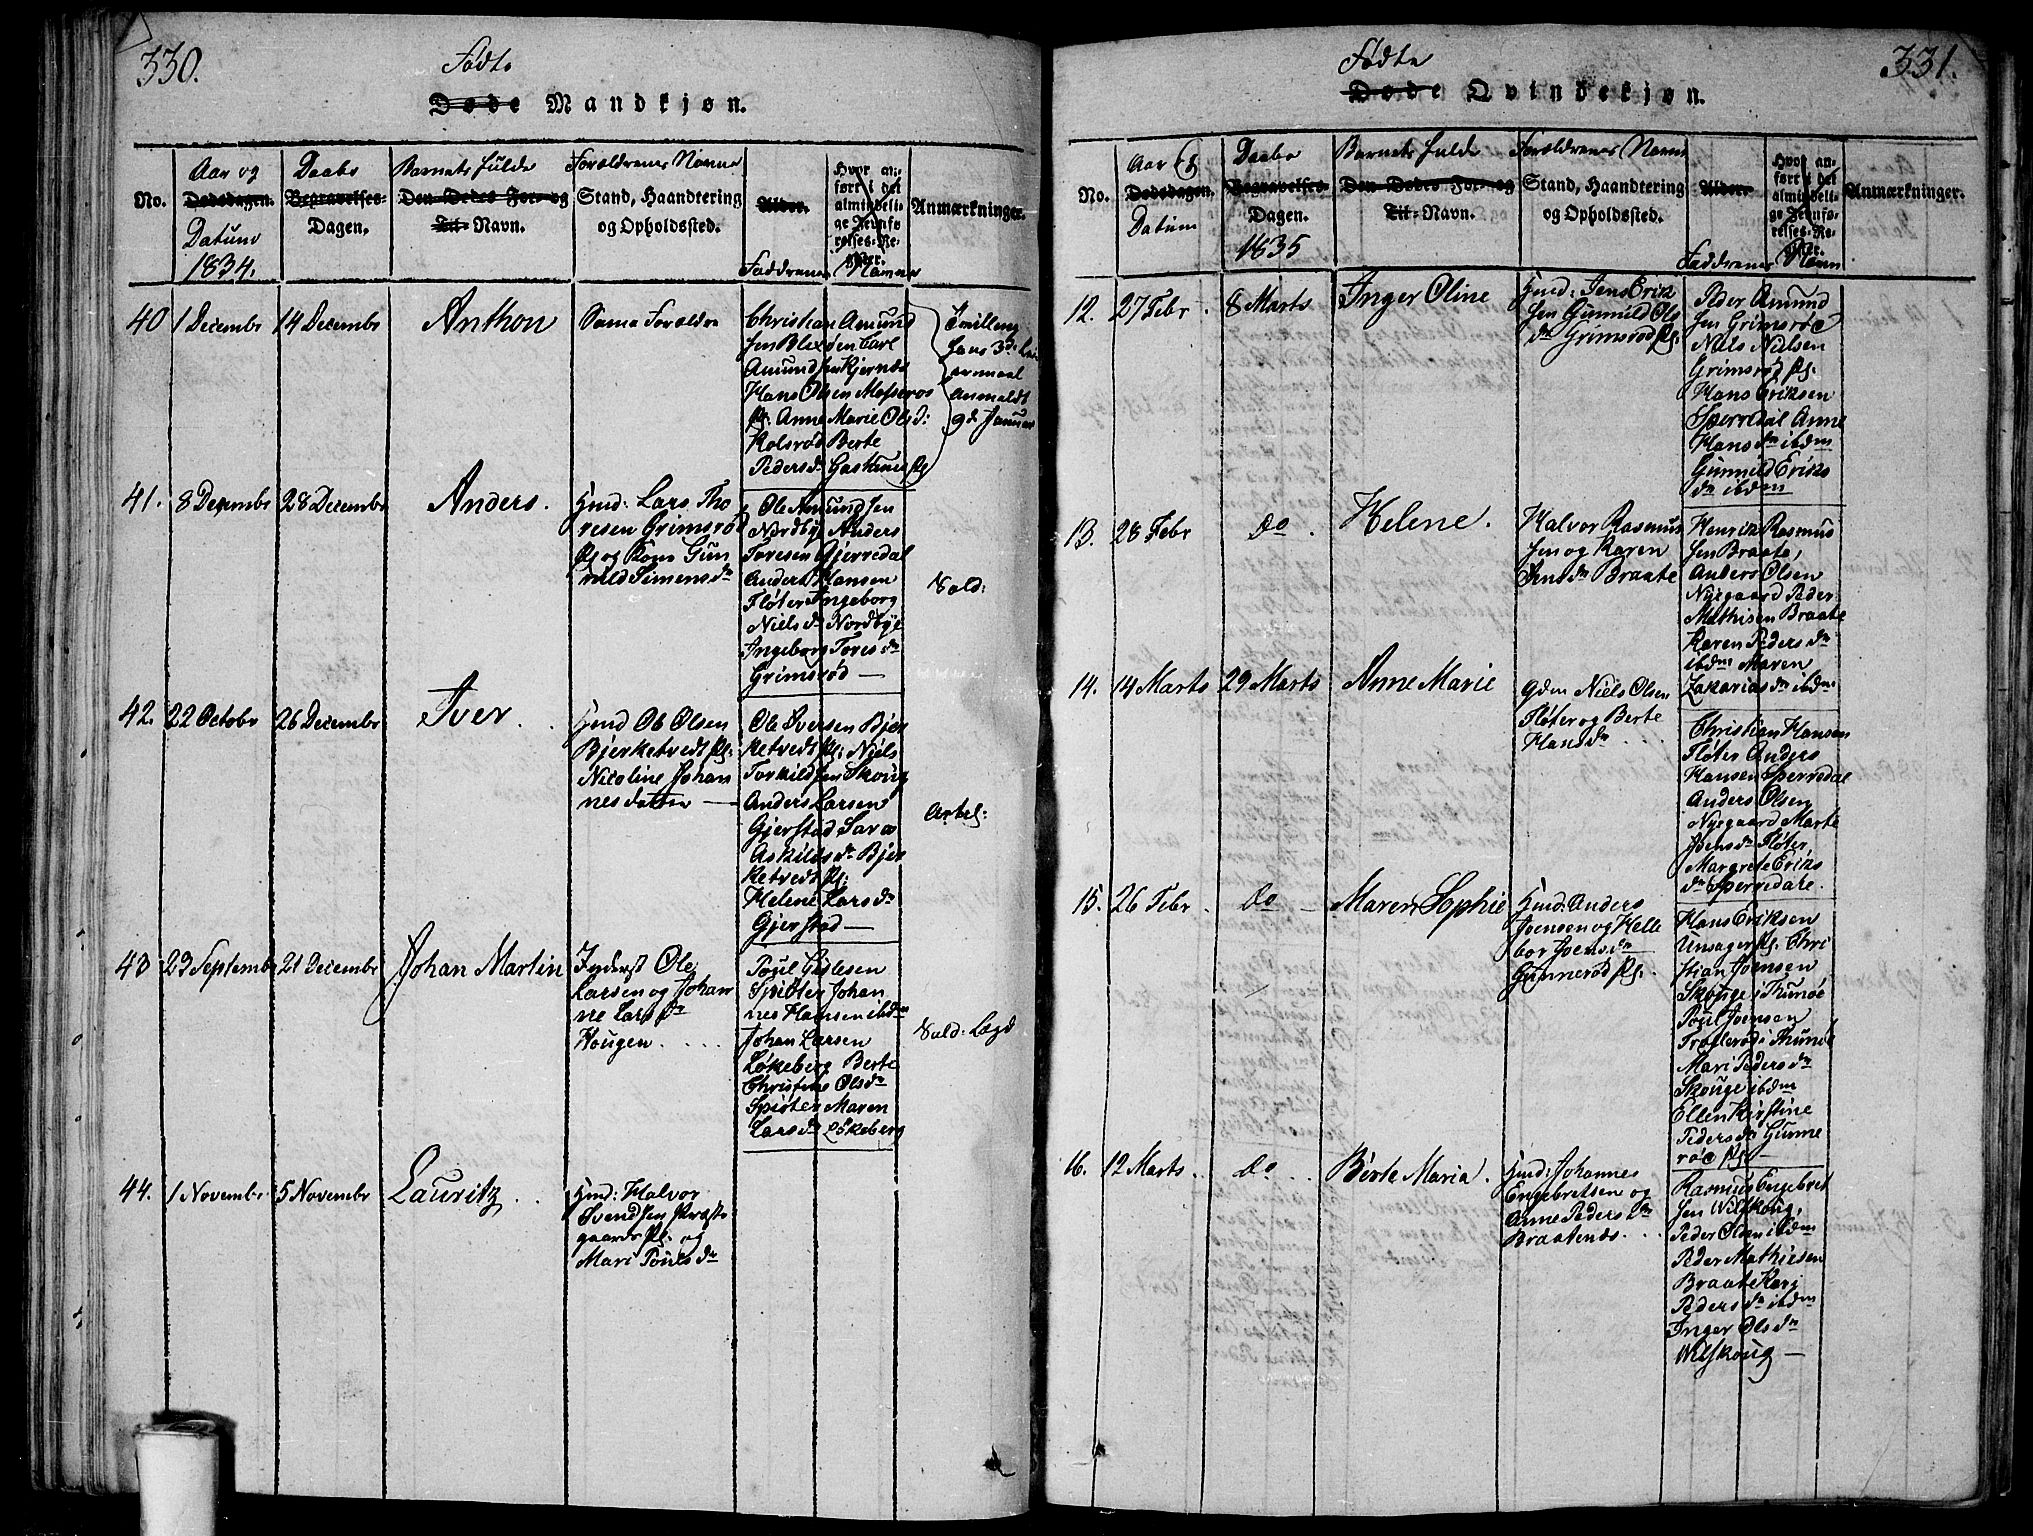 330.
Fødte
Døde Mandkjøn.
No.
Aar og
Dødsdagen.
Datum
1834.
Daabs
Begravelses-
Dagen.
Barnets fulde
Den Dødes For- og
Til-Navn.
Forældrenes Navne
Stand, Haandtering
og Opholdssted.
Alder.
Hvor an-
ført i det
almindeli-
ge Jevnfø-
relses-Re-
gister.
Faddernes Navne
Anmærkninger.
40
1 Decembr
14 Decembr
Anthon
Same Forældre
Christian Amund
sen Blexøen Carl
Amundsen Kjernæs
Hans Olsen Masserøs
Pl. Anne Marie Olsd:
Kolsrød Berte
Pedersdr Pl
Tvilling
anmeldt
9de Januar
41.
8 Decembr
28 Decembr
Anders.
Hmd: Lars Tho
resen Grimsrød
Pl og Kone Gun
nild Simensdr
Ole Amundsen
Nordbye Anders
Toresen Gjerredal
Anders Hansen
Fløter Ingeborg
Nielsdr Nordbye
Ingeborg Toresdr
Grimsrød —
Vald:
42.
22 Octobr
26 Decembr
Iver.
Hmd Ol Olsen
Bjerketvedt Pl:
Nicoline Johan
nesdatter —
Ole Iversen Bjer
ketvedt Pl: Niels
Torkildsen Skoug
Anders Larsen
Gjerstad Sara
Askildsdr Bjer
ketvedt Pl:
Helene Larsdr
Gjerstad —
43
23 Septembr
21 Decembr
Johan Martin
Inderst Ole
Larsen og Johan
ne Larsdr
Hougen . . . .
Poul Gislesen
Spister Johan
nes Hansen ibdm
Johan Larsen
Løkeberg Berte
Christine Olsdr
Spister Maren
Larsdr Løkeberg
Vald: Lægd
44.
1 Novembr
5 Novembr
Lauritz . .
Hmd: Halvor
Svendsen Præste
gaards Pl: og
Mari Poulsdr
331.
Fødte
Døde Qvindekjøn.
No.
Aar &
Dødsdagen.
Datum
Daabs
Begravelses-
Dagen.
1835
Barnets fulde
Den Dødes For- og
Til-Navn.
Forældrenes Navne
Stand, Haandtering
og Opholdssted.
Alder.
Hvor an-
ført i det
almindeli-
ge Jevnfø-
relses-Re-
gister.
Faddernes Navn
Anmærkninger.
12.
27 Febr
8 Marts
Inger Oline
Hmd: Jens Erik
sen Gunnild Ols
dr Grimsrød Pl:
Peder Amund
sen Grimsrøe
Niels Nielsen
Grimsrød Pl.
Hans Eriksen
Sperredal Anne
Hansdr ibdm
Gunnild Eriks
dr ibdm
13.
28 Febr
do
Helene.
Halvor Rasmus
sen og Karen
Jensdr Braate
Henrik Rasmus
sen Braate,
Anders Olsen
Nyegaard Peder
Mathisen Braate
Karen Pedersdr
ibdm Maren
Zakariasdr ibdm
14.
14 Marts
29 Marts
Anne Marie
Gdm Niels Olsen
Fløter og Berte
Hansdr . . .
Christian Hansen
Fløter Anders
Hansen Sperredal
Anders Olsen
Nyegaard Marte
Joensdr Fløter
Margrete Eriks
dr Sperredale.
15.
26 Febr .
do —
Maren Sophie
Hmd: Anders
Joensen og Helle
bor Joensdr
Gunnerød Pl: .
Hans Eriksen
Unsager Pl: Chri
stian Joensen
Skouge i Thunøe
Poul Joensen
Trollerød i Thunøe
Mari Pedersdr
Skouge ibdm
Ellen Kirstine
Pedersdr Gunne
røe Pl —
16.
12 Marts .
do . .
Berte Maria .
Hmd: Johannes
Engebretsen og
Anne Pedersdr
Braatenes . . .
Rasmus Engebret
sen Wilskoug,
Peder Olsen ibdm
Peder Mathiesen
Braate Kari
Pedersdr ibdm
Inger Olsdr
Wilskoug —